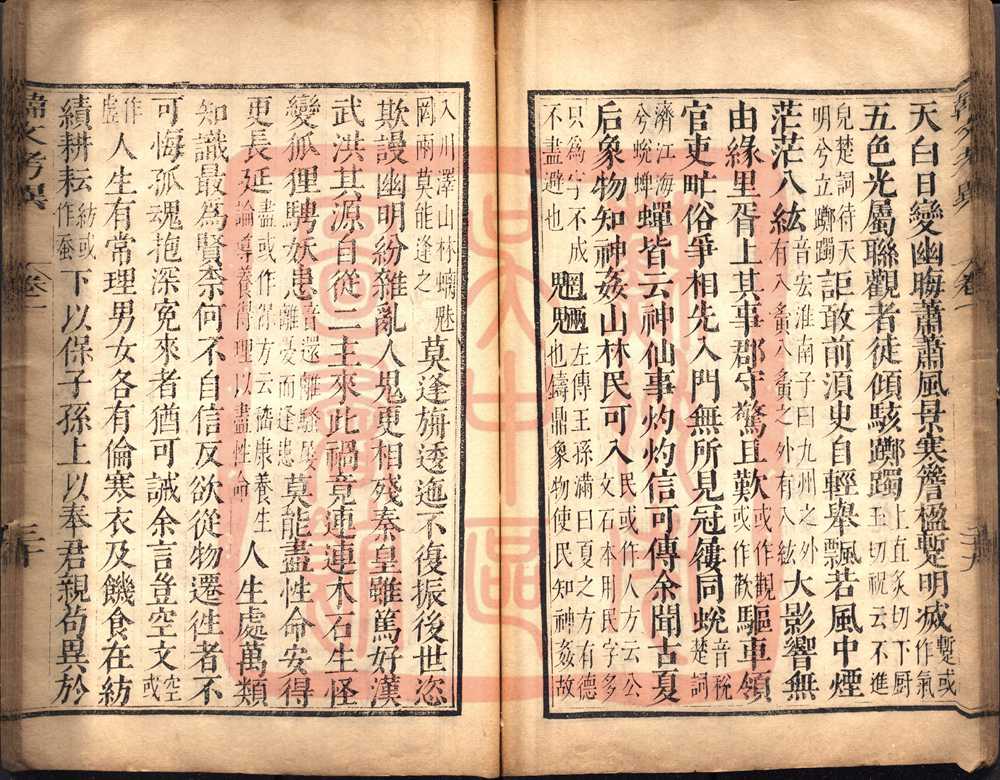 韓文考異 卷一 二十九
天白日變幽晦蕭蕭風景寒簷楹蹔明滅蹔或作氣
五色光屬聯觀者徒傾駭躑躅上直炙切下厨玉切祝云不進
皃楚詞待天明兮立躑躅詎敢前湏臾自輕舉飄若風中煙
茫茫八紘音宏淮南子曰九州之外有八夤八夤之外有八紘大影響無
由緣里胥上其事郡守驚且歎或作觀或作歡驅車領
官吏甿俗爭相先入門無所見冠屨同蛻音稅楚詞
濟江海兮蛻蟬蟬皆云神仙事灼灼信可傳余聞古夏
后象物知神姦山林民可入民或作人方云公文石本用民字多
只為字不成不盡避也魍魎左傳王孫滿曰夏之方有德也鑄鼎象物使民知神姦故
入川澤山林螭魅罔兩莫能逢之莫逢旃逶迤不復振後世恣
欺謾幽明紛雜亂人鬼更相殘秦皇雖篤好漢
武洪其源自從二主來此禍竟連連木石生怪
變狐狸騁妖患音還離騷屢離憂而逢患莫能盡性命安得
更長延盡或作得方云嵇康養生論導養得理以盡性命人生處萬類
知識最爲賢柰何不自信反欲從物遷徃者不
可悔孤魂抱深冤來者猶可誡余言豈空文空或
作虛人生有常理男女各有倫寒衣及饑食在紡
績耕耘紡或作蚕下以保子孫上以奉君親苟異於
韓文考異 卷一 三十